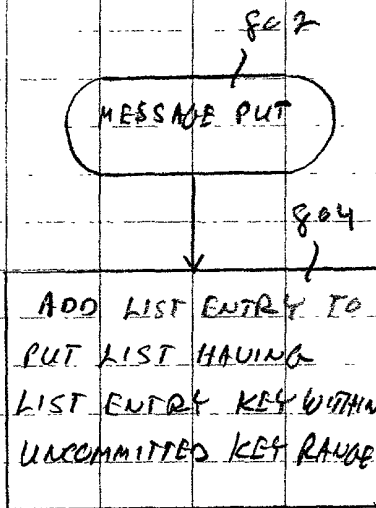 802
MESSAGE PUT
804
ADD LIST ENTRY TO
PUT LIST HAVING
LIST ENTRY KEY WITHIN
UNCOMMITTED KEY RANGE